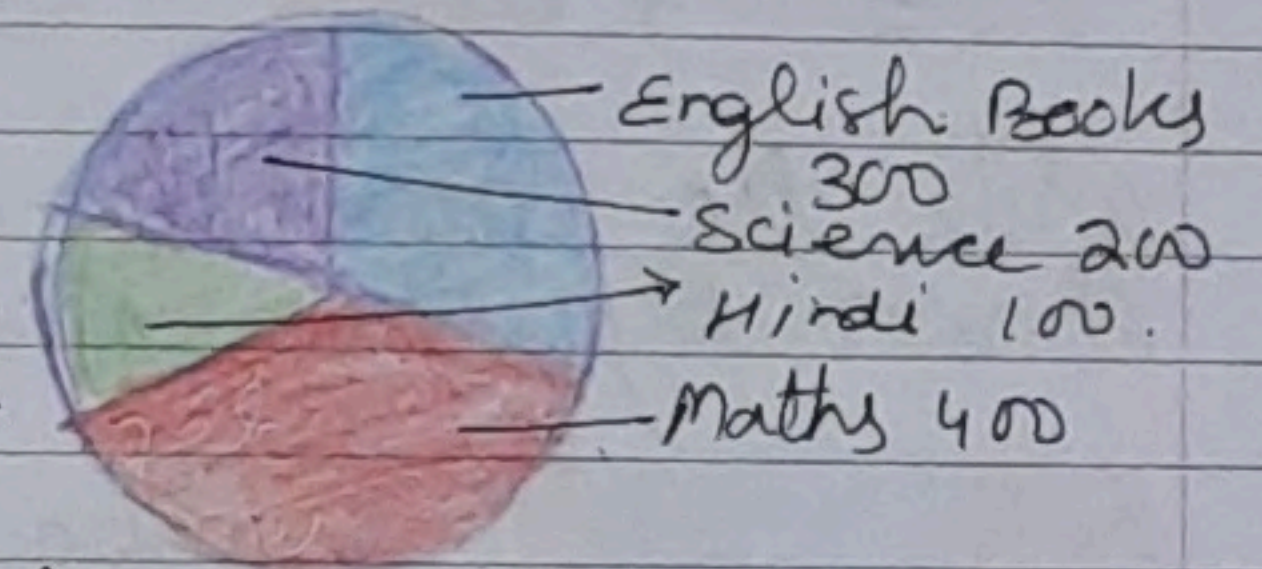 English Books
300
Science 200
Hindi 100.
Maths 400